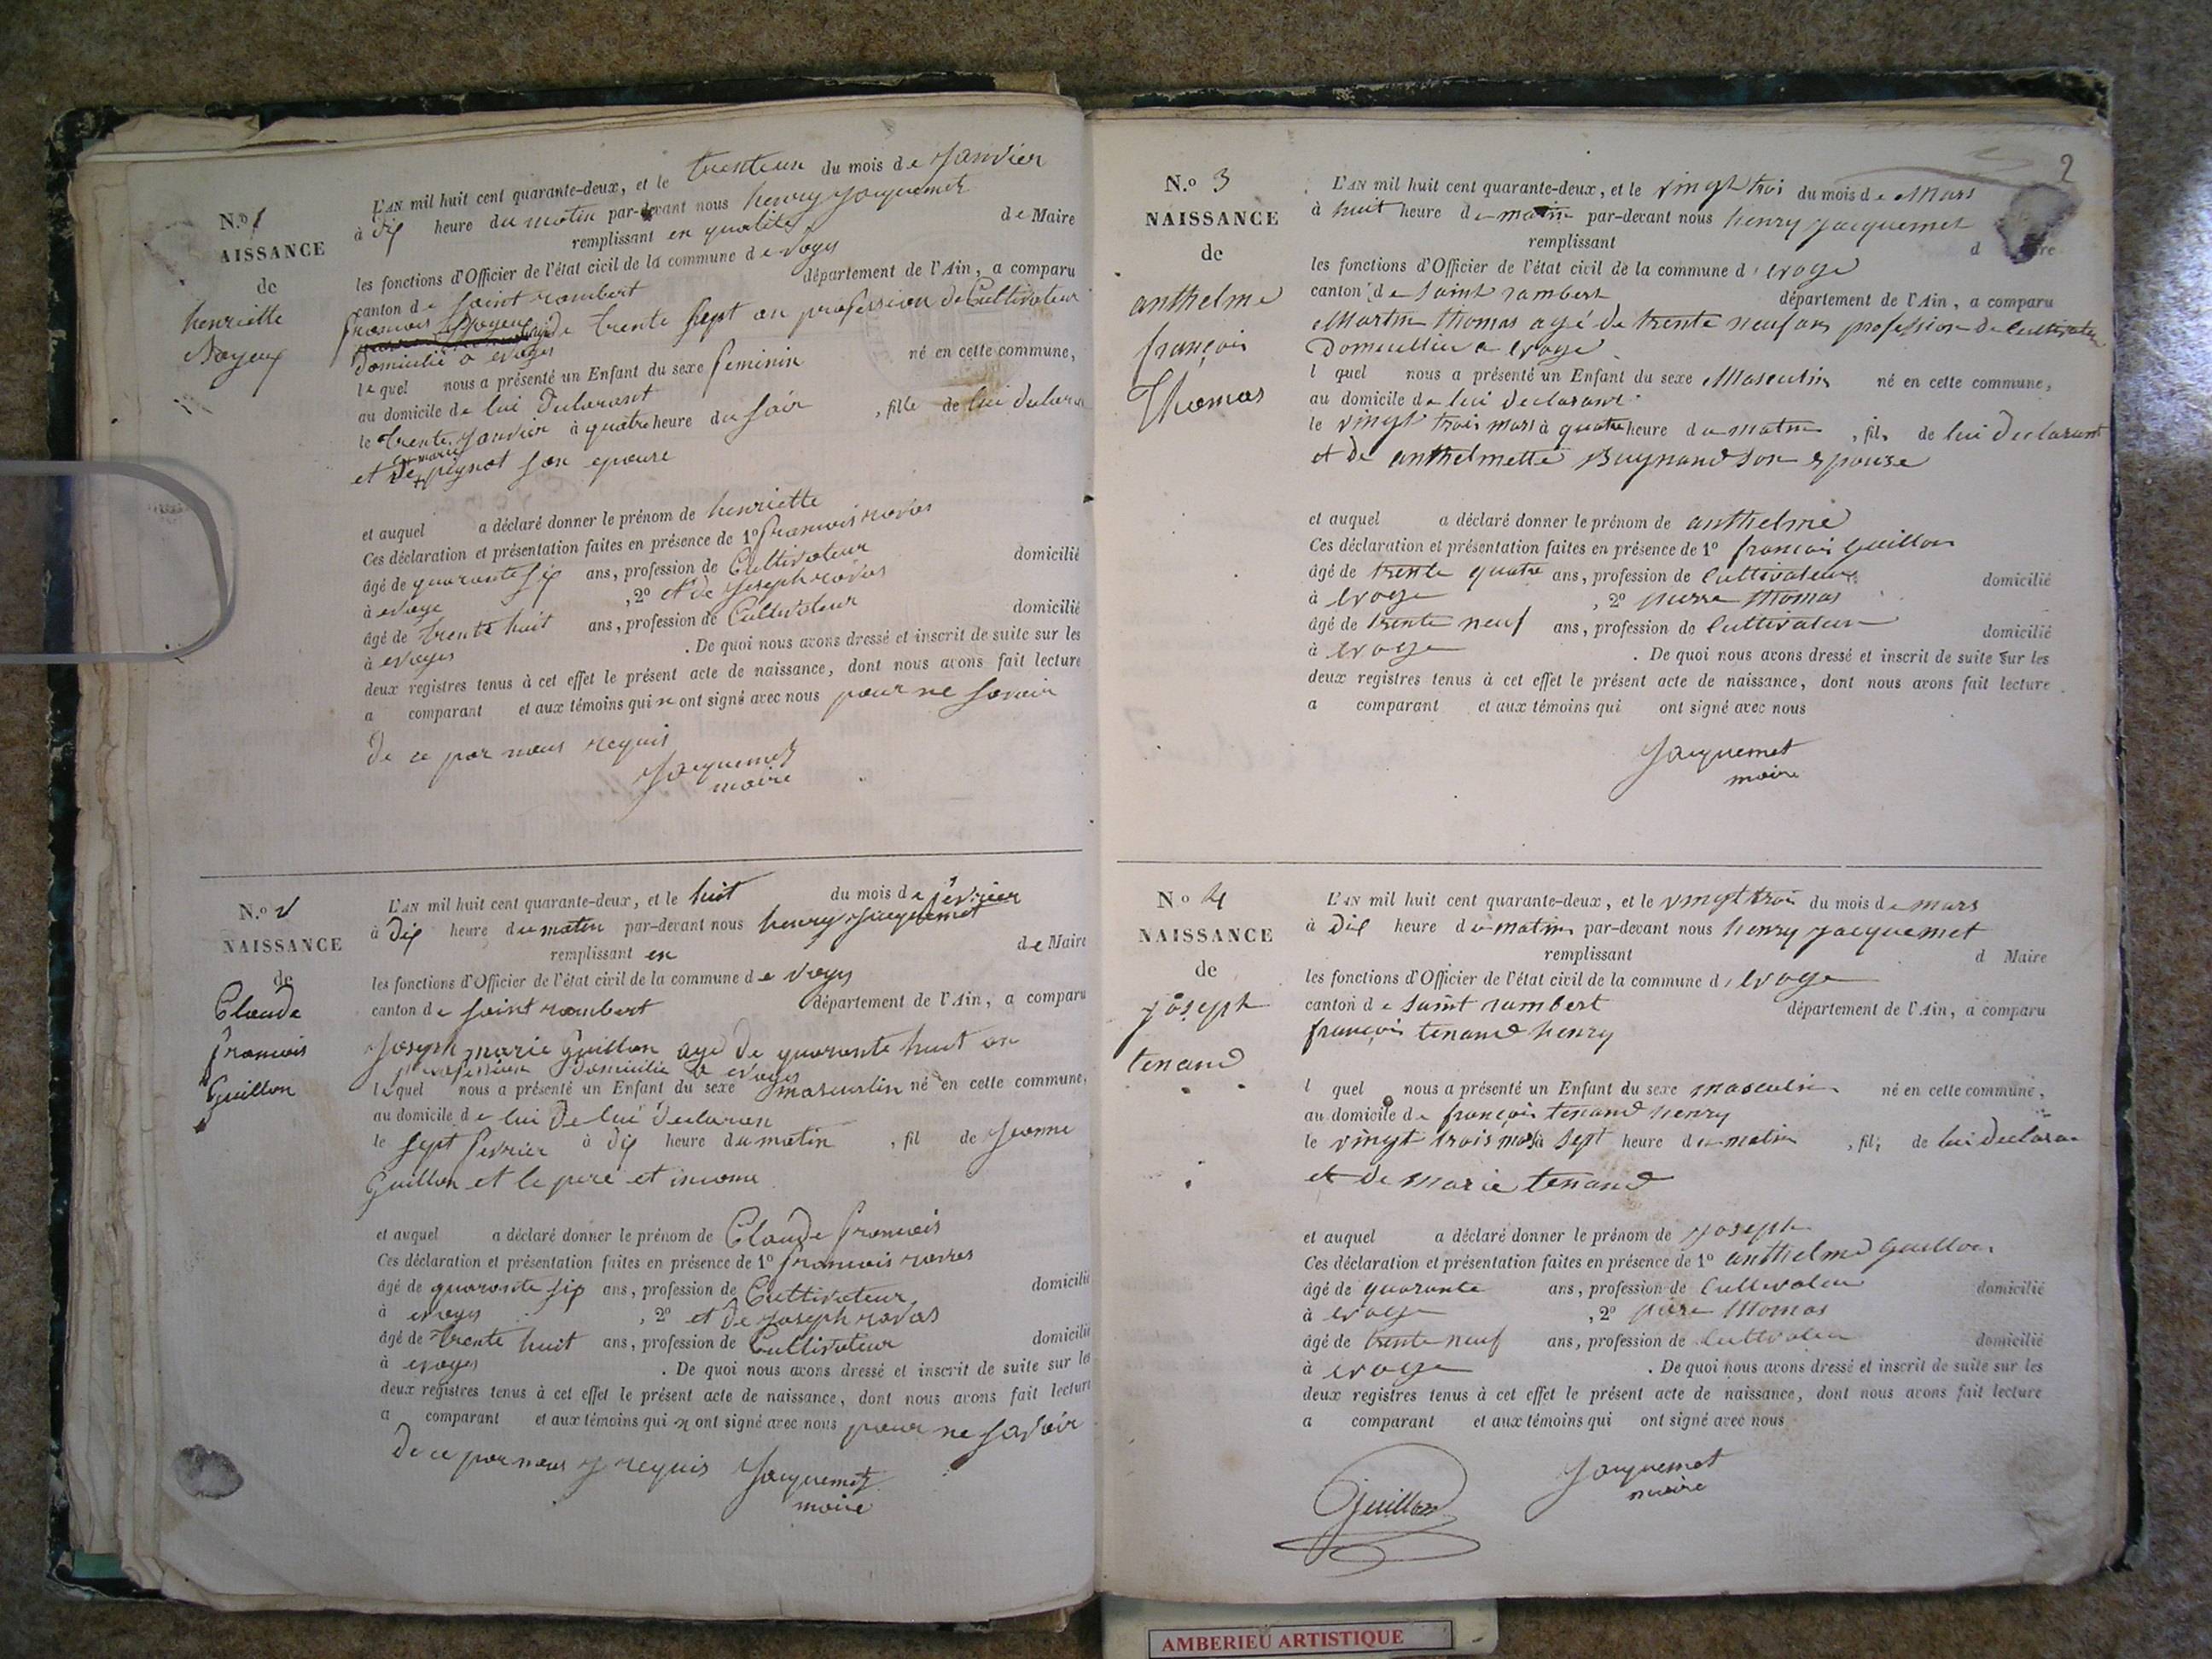 N.o 1
AISSANCE
de
henriette
Boyeux
L'AN mil huit cent quarante-deux, et le trenteun du mois de Janvier
à dix heure du matin par-devant nous henry Jacquemet
remplissant en qualité de Maire
les fonctions d'Officier de l'état civil de la commune d evoges
canton de saint rambert département de l'Ain, a comparu
francois Boyeux âgé de trente sept an profession de Cultivateur
domicilié a evoges
le quel nous a présenté un Enfant du sexe feminin né en cette commune,
au domicile de lui declarant
le trente Janvier à quatre heure du soir, fille de lui declara
et de marie pignot son epouse
et auquel a déclaré donner le prénom de henriette
Ces déclaration et présentation faites en présence de 1o francois ravas
âgé de quarante six ans, profession de Cultivateur domicilié
à evoge, 2o et de Joseph ravas
âgé de trente huit ans, profession de Cultivateur domicilié
à evoges. De quoi nous avons dressé et inscrit de suite sur les
deux registres tenus à cet effet le présent acte de naissance, dont nous avons fait lecture
a comparant et aux témoins qui n ont signé avec nous pour ne savoir
de ce par nous requis
Jacquemet
maire
N.o 2
NAISSANCE
de
Claude
francois
Guillon
L'AN mil huit cent quarante-deux, et le huit du mois de février
à dix heure du matin par-devant nous henry Jacquemet
remplissant en de Maire
les fonctions d'Officier de l'état civil de la commune d e voges
canton de saint rambert département de l'Ain, a comparu
Joseph marie Guillon agé de quarante huit an
profession domicilié a evoges
lequel nous a présenté un Enfant du sexe masculin né en cette commune,
au domicile de lui de lui declaran
le sept fevrier à dix heure du matin, fil de Jeanne
Guillon et le pere et inconu
et auquel a déclaré donner le prénom de Claude francois
Ces déclaration et présentation faites en présence de 1o francois ravas
âgé de quarante six ans, profession de Cultivateur domicilié
à evoges, 2o et de Joseph ravas
âgé de trente huit ans, profession de Cultivateur domicilié
à evoges. De quoi nous avons dressé et inscrit de suite sur les
deux registres tenus à cet effet le présent acte de naissance, dont nous avons fait lecture
a comparant et aux témoins qui n ont signé avec nous pour ne savoir
de ce par nous requis Jacquemet
maire
2
N.o 3
NAISSANCE
de
anthelme
françois
Thomas
L'AN mil huit cent quarante-deux, et le vingt trois du mois de Mars
à huit heure de matin par-devant nous henry Jacquemet
remplissant d re
les fonctions d'Officier de l'état civil de la commune d' evoge
canton de saint rambert département de l'Ain, a comparu
Martin thomas agé de trente neuf ans profession de Cultivateu
Domicillier a evoge
l quel nous a présenté un Enfant du sexe Masculin né en cette commune,
au domicile de lui declarant
le vingt trois mars à quatre heure du matin, fils de lui declarant
et de anthelmette Buynand son epouse
et auquel a déclaré donner le prénom de anthelme
Ces déclaration et présentation faites en présence de 1o francois Guillon
âgé de trente quatre ans, profession de Cultivateur domicilié
à evoge, 2o pierre thomas
âgé de trente neuf ans, profession de Cultivateur domicilié
à evoge. De quoi nous avons dressé et inscrit de suite sur les
deux registres tenus à cet effet le présent acte de naissance, dont nous avons fait lecture
a comparant et aux témoins qui ont signé avec nous
Jacquemet
maire
No 4
NAISSANCE
de
joseph
tenand
L'AN mil huit cent quarante-deux, et le vingt trois du mois de mars
à dix heure du matin par-devant nous henry Jacquemet
remplissant d Maire
les fonctions d'Officier de l'état civil de la commune d' evoge
canton de saint rambert département de l'Ain, a comparu
françois tenand henry
l quel nous a présenté un Enfant du sexe masculin né en cette commune,
au domicile de françois tenand henry
le vingt trois mars à sept heure du matin, fils de lui declara
et de marie tenand
et auquel a déclaré donner le prénom de joseph
Ces déclaration et présentation faites en présence de 1o anthelme Guillon
âgé de quarante ans, profession de Cultivateu domicilié
à evoge, 2o piere thomas
âgé de trente neuf ans, profession de Cultivateu domicilié
à evoge. De quoi nous avons dressé et inscrit de suite sur les
deux registres tenus à cet effet le présent acte de naissance, dont nous avons fait lecture
a comparant et aux témoins qui ont signé avec nous
Jacquemet
maire
Guillon
AMBERIEU ARTISTIQUE